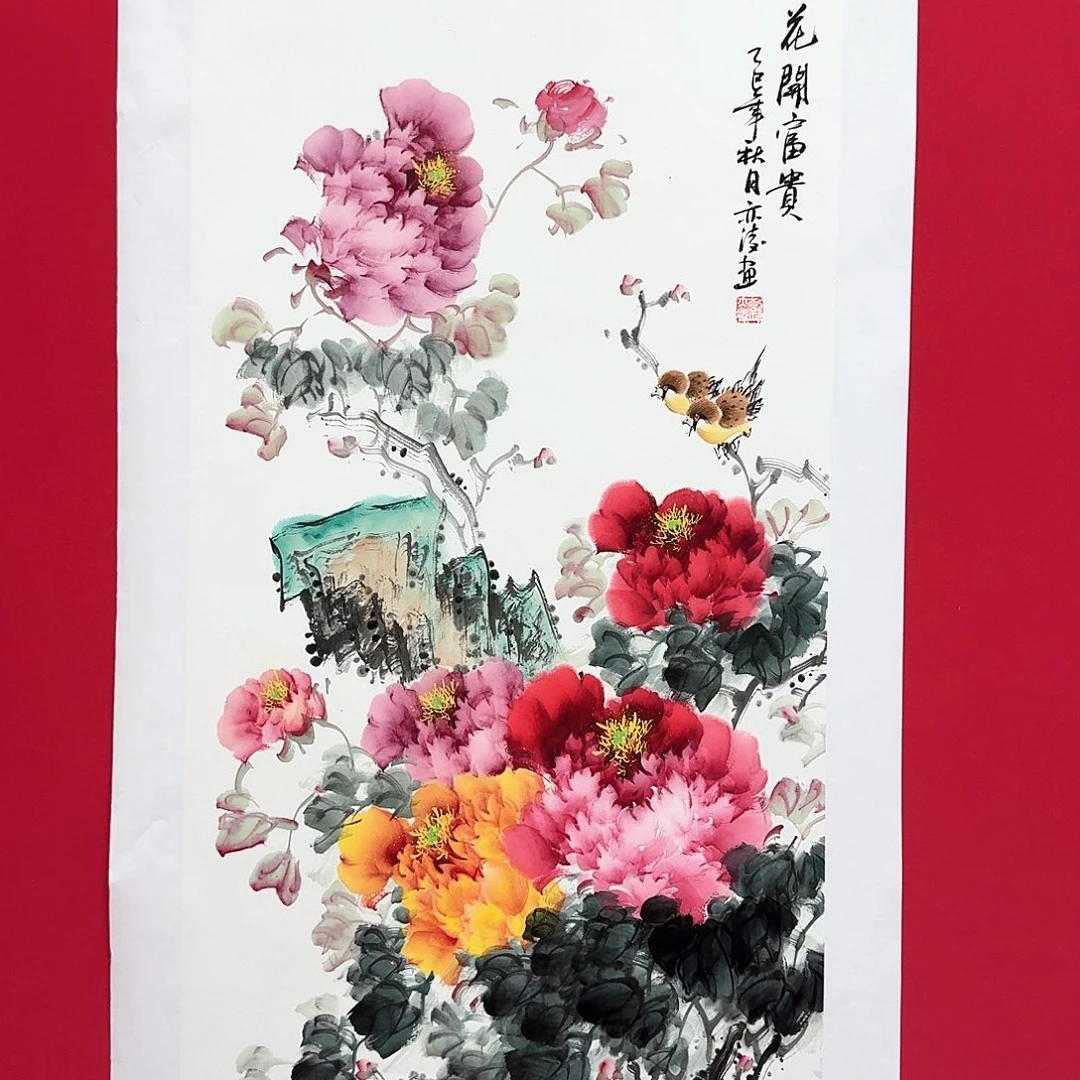 花開富貴
乙巳年秋月亦濤画